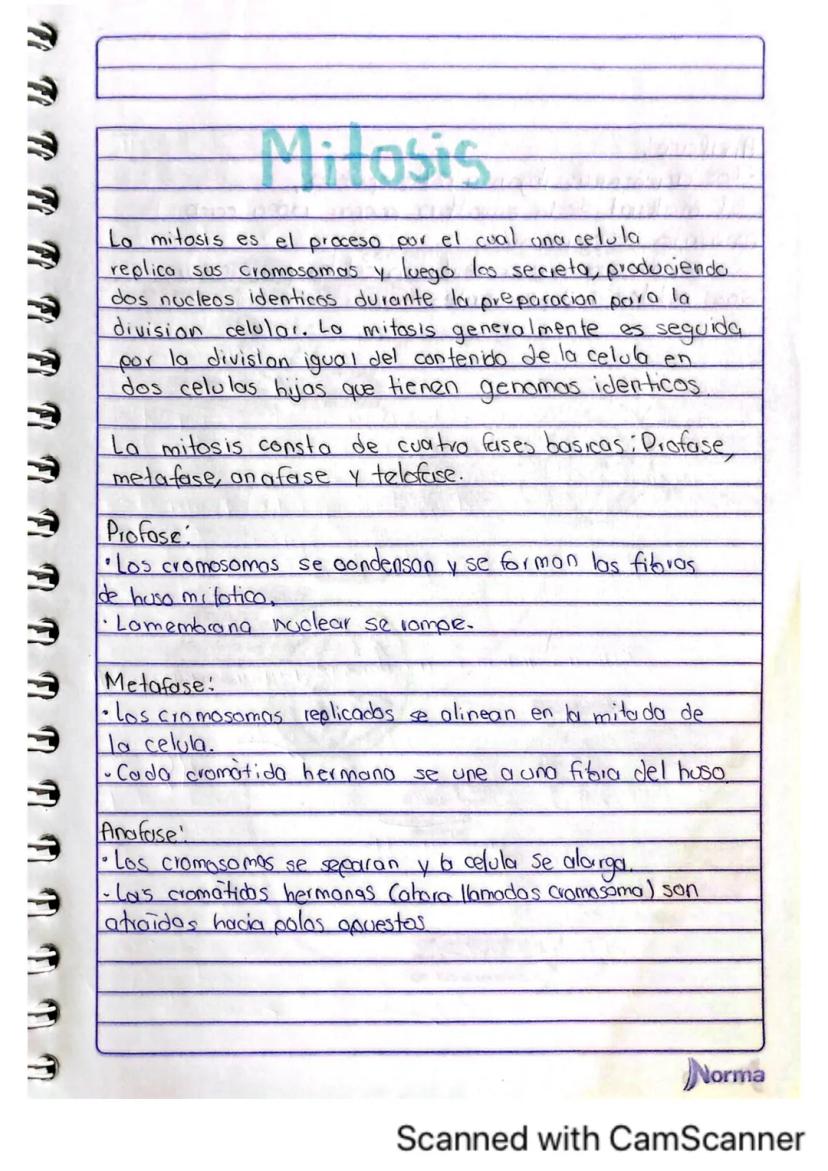 Mitosis
La mitosis es el proceso por el cual una celula
replica sus cromosomas y luego los secreta, produciendo
dos nucleos identicos durante la preparacion para la
division celular. La mitosis generalmente es seguida
por la division igual del contenido de la celula en
dos celulas hijas que tienen genomas identicos.
La mitosis consta de cuatro fases basicas: Profase,
metafase, anafase y telofase.
Profase:
• Los cromosomas se condensan y se forman las fibras
de huso mitotico.
• La membrana nuclear se rompe.
Metafase:
• Los cromosomas replicados se alinean en la mitada de
la celula.
• Cada cromátida hermana se une a una fibra del huso.
Anafase:
• Los cromosomas se separan y la celula se alarga.
• Las cromátidas hermanas (ahora llamadas cromosoma) son
atraídas hacia polos opuestos
Norma
Scanned with CamScanner